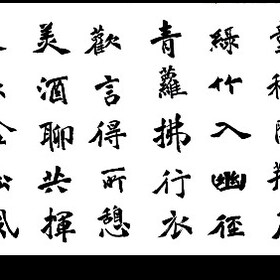 綠竹入幽徑
青蘿拂行衣
歡言得所憩
美酒聊共揮